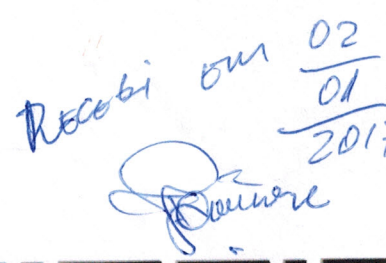 Recebi em 02
01
2017